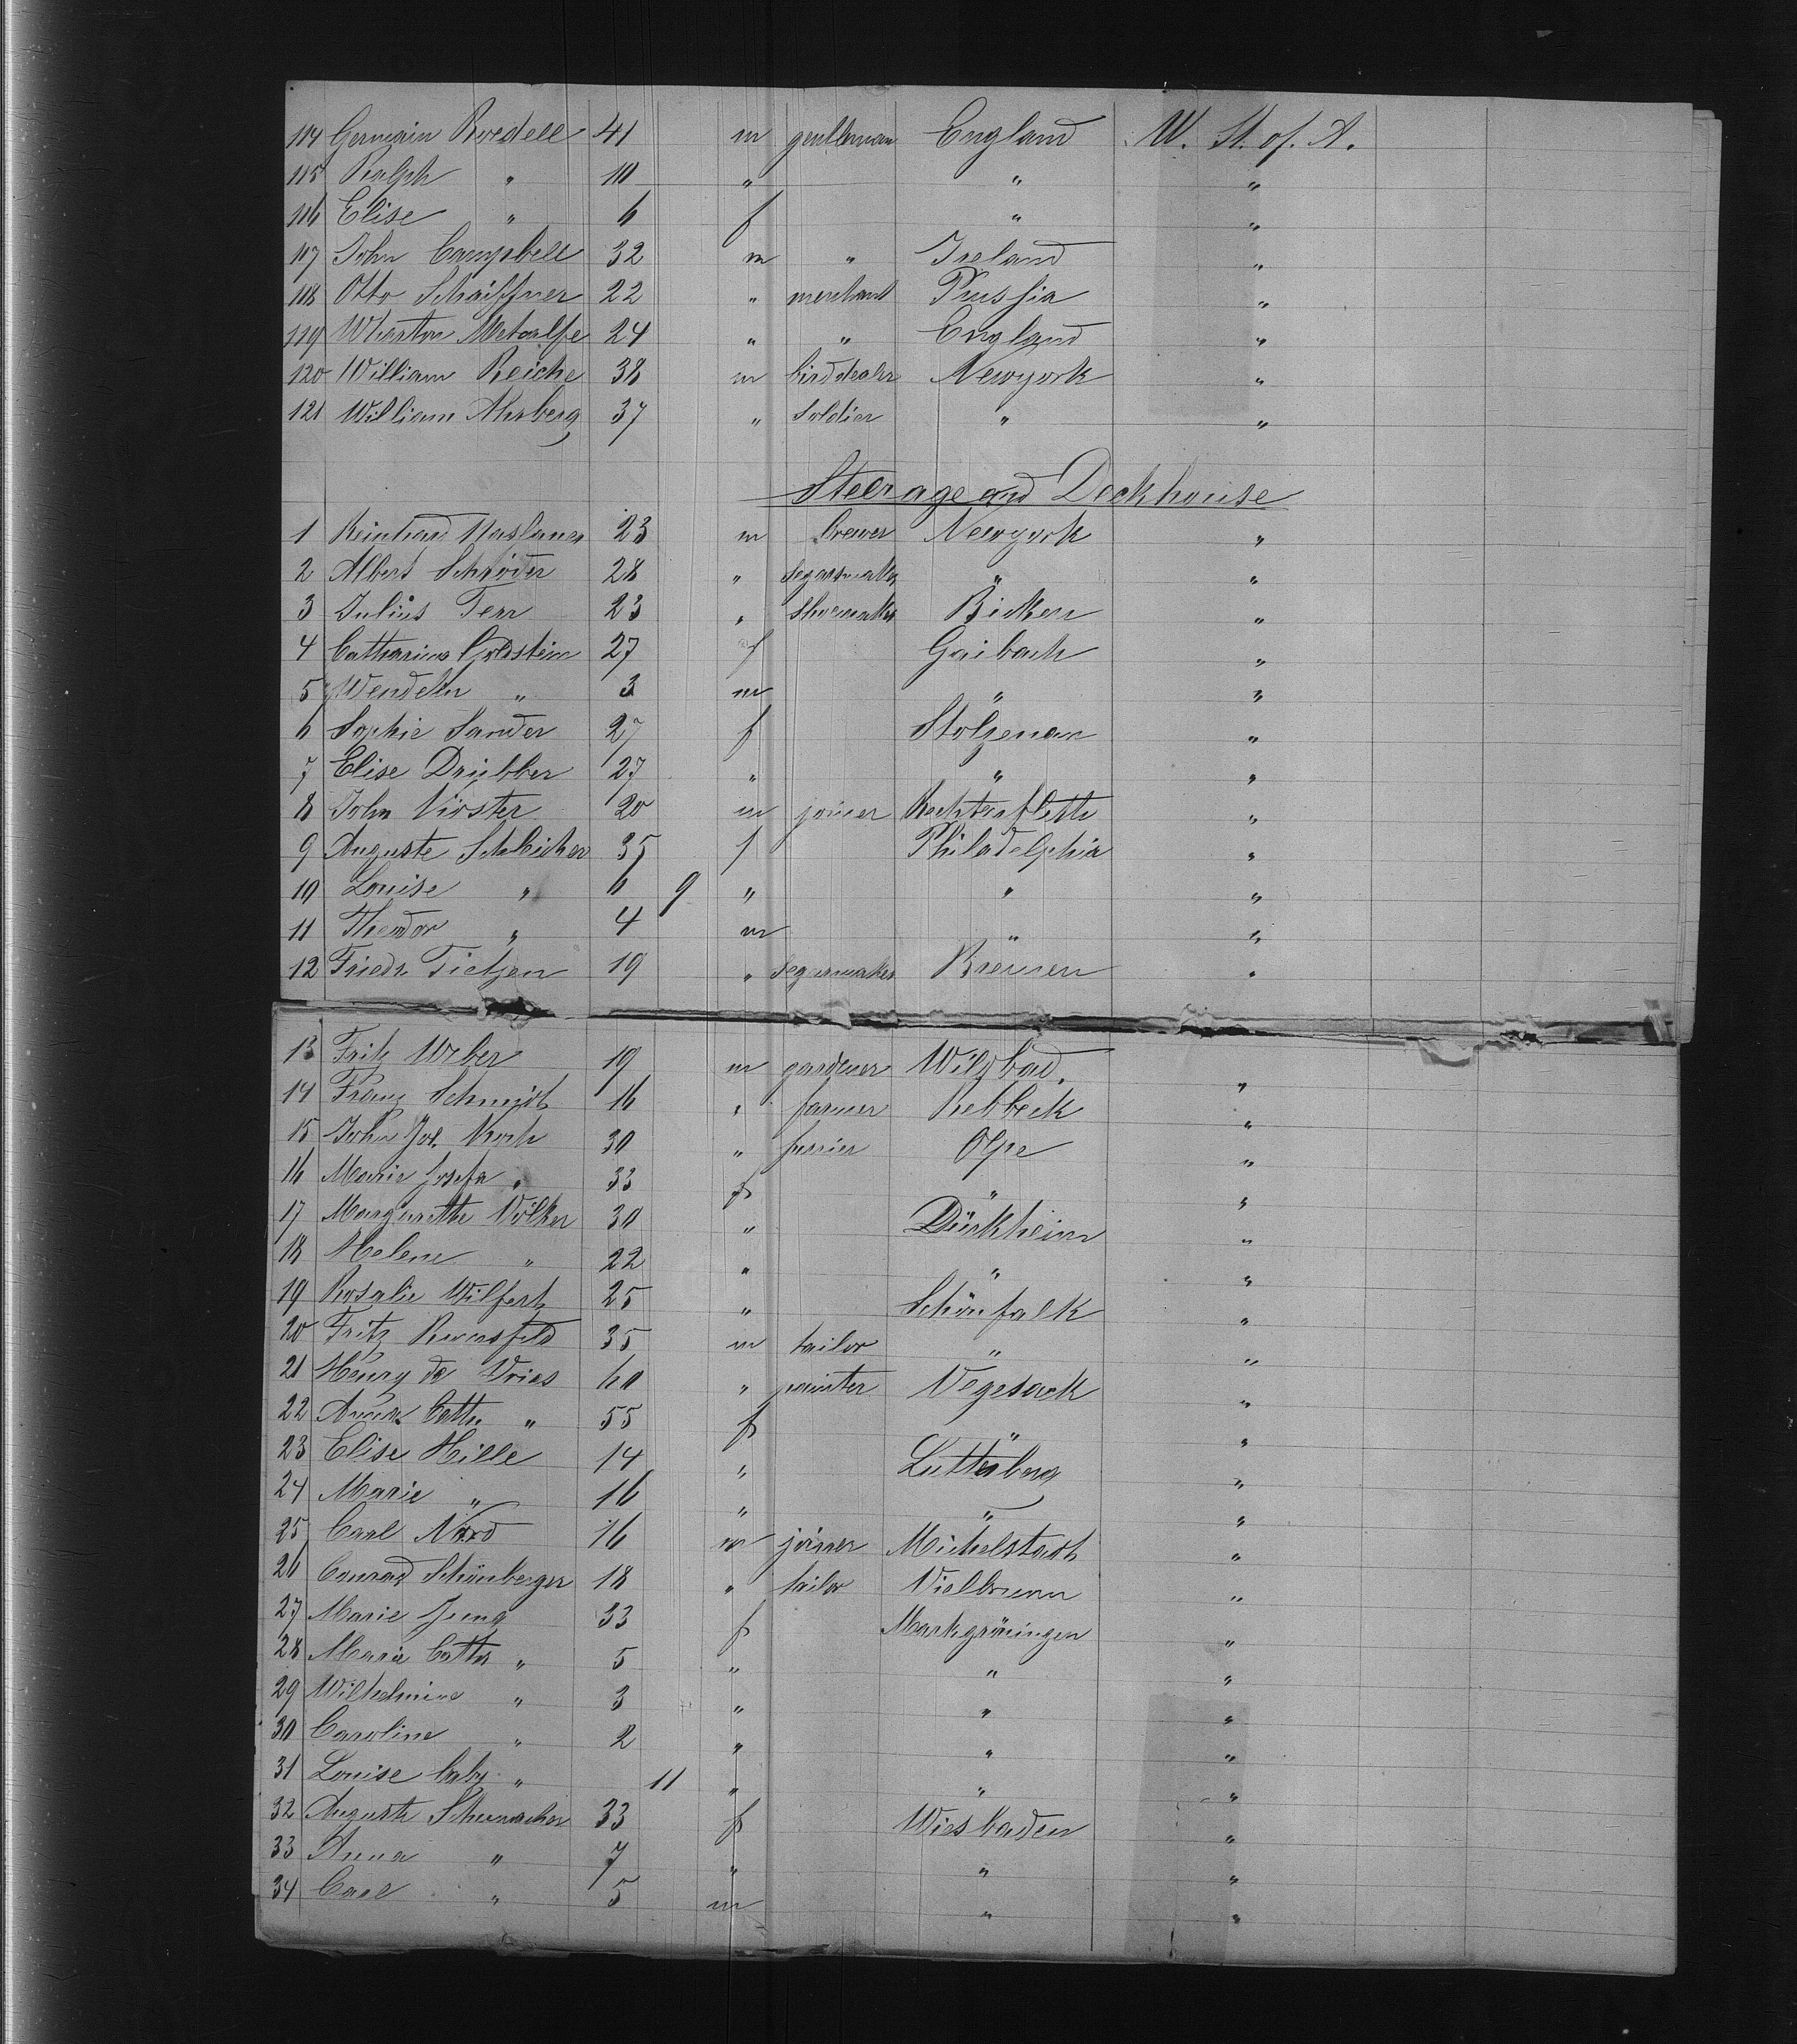 114 Germain Roedell 41 m gentleman England U. St. of. A.
115 Ralph " 10 " " "
116 Elise " 6 f " "
117 John Campbell 32 m " Ireland "
118 Otto Schaiffner 22 " merchand Prussia "
119 Wharton Metcalfe 24 " " England "
120 William Reiche 38 m birddealer Newyork "
121 William Ahrberg 37 " soldier " "
Steerage and Deckhouse
1 Reinhard 23 m brewer Newyork "
2 Albert Schröder 28 " segarmaker " "
3 Julius 23 " shoemaker Bicken "
4 Catharina Goldstein 27 f Gaibach "
5 Wendelin " 3 m " "
6 Sophie Sander 27 f Stolzenau "
7 Elise Drübber 27 " " "
8 John Köster 20 m joiner Rechtenfleth "
9 Auguste Schleicher 35 f Philadelphia "
10 Louise " 6 9 " " "
11 Theodor " 4 m " "
12 Friedr. Tietjen 19 " segarmaker Bremen "
13 Fritz Weber 19 m gardener Wildbad. "
14 Franz Schmidt 16 " farmer Rebbeck "
15 John Jos. Koch 30 " furrier Olpe "
16 Marie Josefa " 33 f " "
17 Margarethe Völker 30 " Dürkheim "
18 Helene " 22 " " "
19 Rosalie Wilfert 25 " Schönfalk "
20 Fritz 35 m tailor " "
21 Henry de Vries 60 " painter Vegesack "
22 Anna Cath. " 55 f " "
23 Elise Hille 14 " Lutterberg "
24 Marie " 16 " " "
25 Carl Nord 16 m joiner Michelstadt "
26 Conrad Schönberger 18 " tailor Vielbrunn "
27 Marie Jung 33 f Markgröningen "
28 Marie Catha " 5 " " "
29 Wilhelmine " 3 " " "
30 Caroline " 2 " " "
31 Louise baby " 11 " " "
32 Auguste Schumacher 33 f Wiesbaden "
33 Anna " 7 " " "
34 Carl " 5 m " "